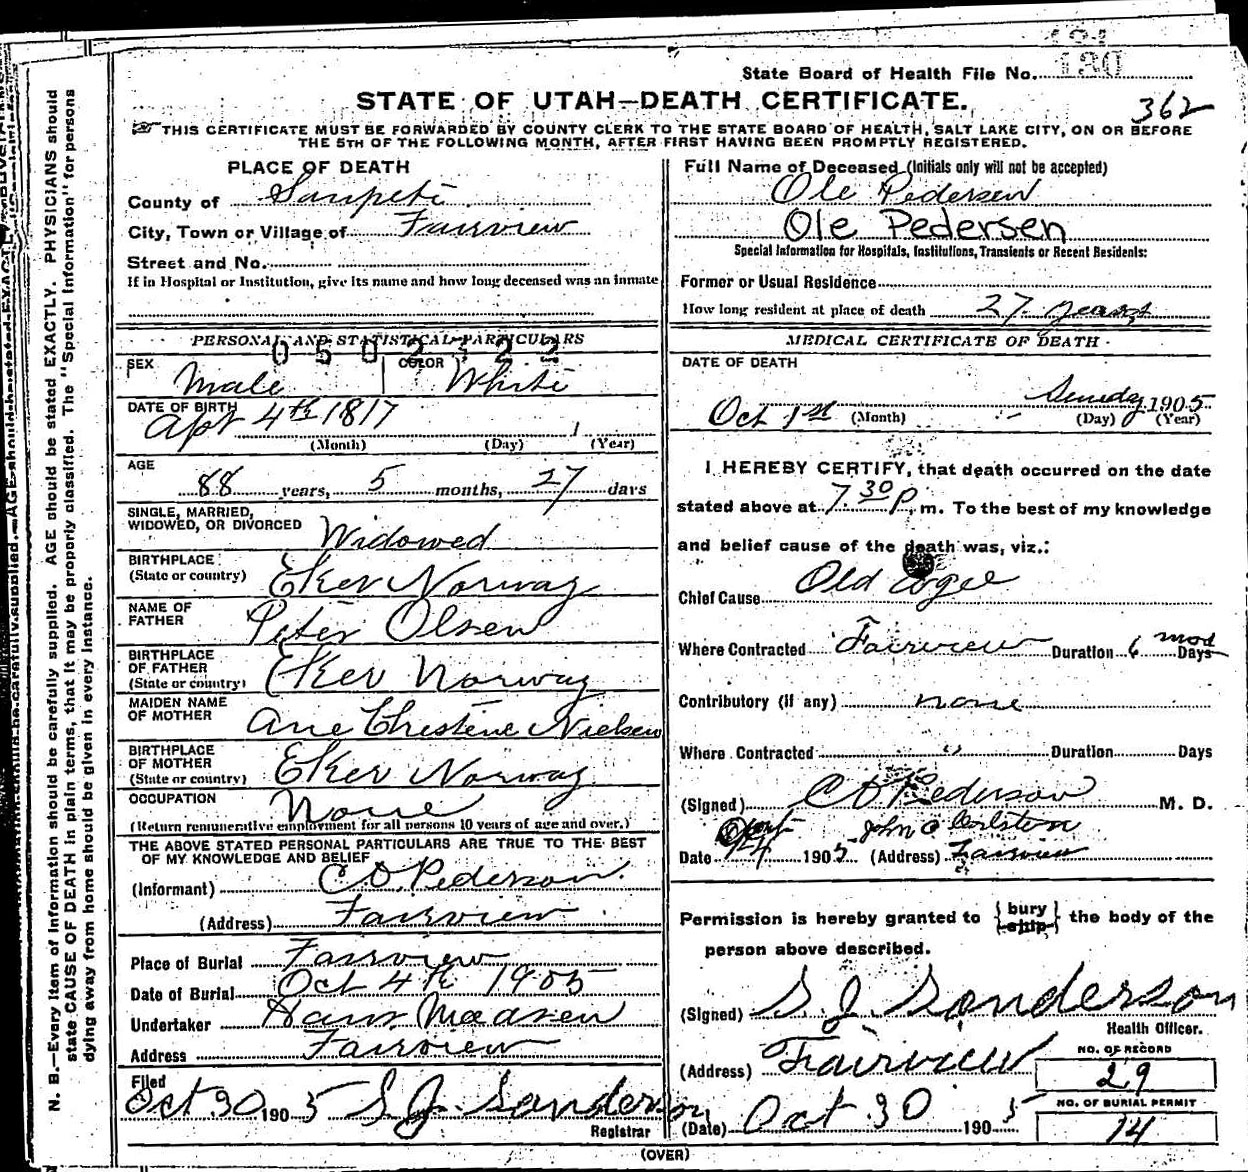 130
State Board of Health File No.
STATE OF UTAH—DEATH CERTIFICATE.
362
THIS CERTIFICATE MUST BE FORWARDED BY COUNTY CLERK TO THE STATE BOARD OF HEALTH, SALT LAKE CITY, ON OR BEFORE
THE 5TH OF THE FOLLOWING MONTH, AFTER FIRST HAVING BEEN PROMPTLY REGISTERED.
PLACE OF DEATH
County of Sanpete
City, Town or Village of Fairview
Street and No.
If in Hospital or Institution, give its name and how long deceased was an inmate
Full Name of Deceased (Initials only will not be accepted)
Ole Pedersen
Ole Pedersen
Special Information for Hospitals, Institutions, Transients or Recent Residents:
Former or Usual Residence
How long resident at place of death 27 years
PERSONAL AND STATISTICAL PARTICULARS
0502322
SEX Male COLOR White
DATE OF BIRTH Apr 4th 1817
(Month) (Day) (Year)
AGE
88 years, 5 months, 27 days
SINGLE, MARRIED,
WIDOWED, OR DIVORCED Widowed
BIRTHPLACE
(State or country) Eker Norway
NAME OF
FATHER Peter Olsen
BIRTHPLACE
OF FATHER
(State or country) Eker Norway
MAIDEN NAME
OF MOTHER Ane Christene Nielsen
BIRTHPLACE
OF MOTHER
(State or country) Eker Norway
OCCUPATION None
(Return remunerative employment for all persons 10 years of age and over.)
THE ABOVE STATED PERSONAL PARTICULARS ARE TRUE TO THE BEST
OF MY KNOWLEDGE AND BELIEF
(Informant) C O Pederson.
(Address) Fairview
Place of Burial Fairview
Date of Burial Oct 4th 1905
Undertaker
Address Fairview
Filed
Oct 30 1905 S J Sanderson
Registrar
MEDICAL CERTIFICATE OF DEATH
DATE OF DEATH
Oct 1st Sunday 1905
(Month) (Day) (Year)
I HEREBY CERTIFY, that death occurred on the date
stated above at 7.30 P. m. To the best of my knowledge
and belief cause of the death was, viz.:
Chief Cause Old age
Where Contracted Fairview Duration 6 mos Days
Contributory (if any) none
Where Contracted Duration Days
(Signed) C O Pederson M. D.
John
Date 1905 (Address) Fairview
Permission is hereby granted to {bury ship} the body of the
person above described.
(Signed) S. J. Sanderson
Health Officer.
(Address) Fairview
NO. OF RECORD
29
NO. OF BURIAL PERMIT
14
(Date) Oct 30 1905
(OVER)
N. B.—Every item of information should be carefully supplied. AGE should be stated EXACTLY. PHYSICIANS should
state CAUSE OF DEATH in plain terms, that it may be properly classified. The "Special Information" for persons
dying away from home should be given in every instance.